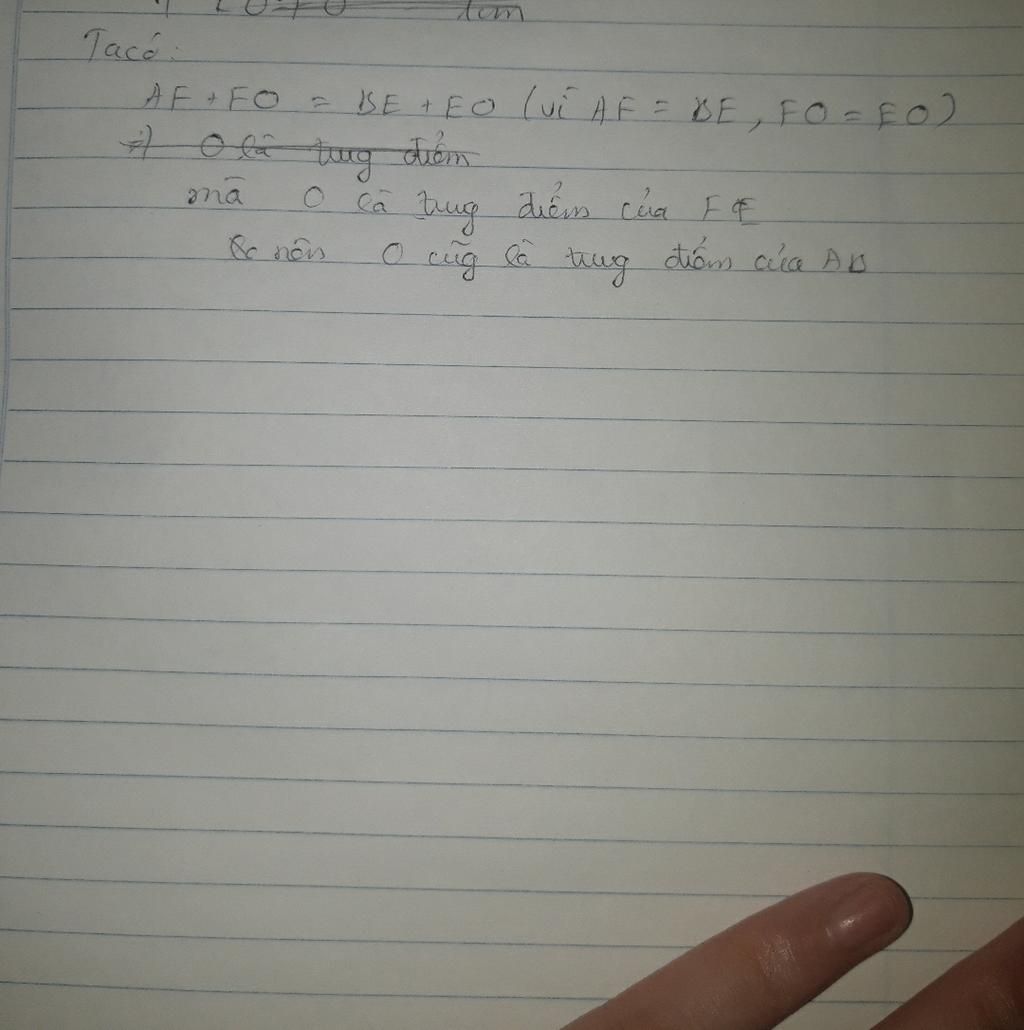 Ta có:
AF + FO = BE + EO (vì AF = BE, FO = EO)
=) O là trug điểm
mà O là trug điểm của FE
nên O cũg là trug điểm của AB